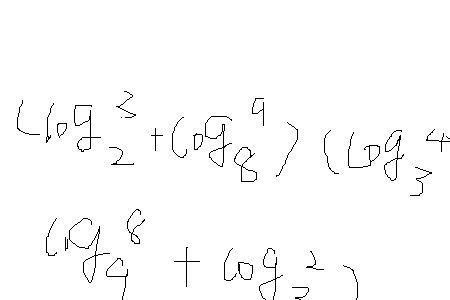 (log₂³+log₈⁹)(log₃⁴
log₉⁸+log₃²)